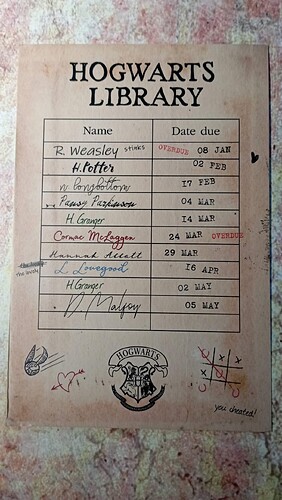 HOGWARTS
LIBRARY
Name Date due
R. Weasley stinks OVERDUE 08 JAN
H. Potter 02 FEB
N. Longbottom 17 FEB
Pansy Parkinson 04 MAR
H. Granger 14 MAR
Cormac McLaggen 24 MAR OVERDUE
Hannah Abbott 29 MAR
L Lovegood 16 APR
H. Granger 02 MAY
D. Malfoy 05 MAY
HOGWARTS
X X
X
you cheated!